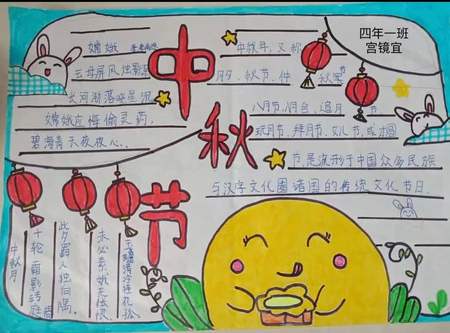 四年一班
宫镜宜
中秋节
嫦娥
云母屏风烛影深
长河渐落晓星沉
嫦娥应悔偷灵药,
碧海青天夜夜心.
中秋节,又称
月夕、秋节、仲秋节
八月节、追月节
玩月节、拜月节、女儿节,或团圆
节,是流行于中国众多民族
与汉字文化圈诸国的传统文化节日.
中秋月
十轮霜影转庭梧
此夕羁人独向隅
未必素娥无怅恨
玉蟾清冷桂花孤